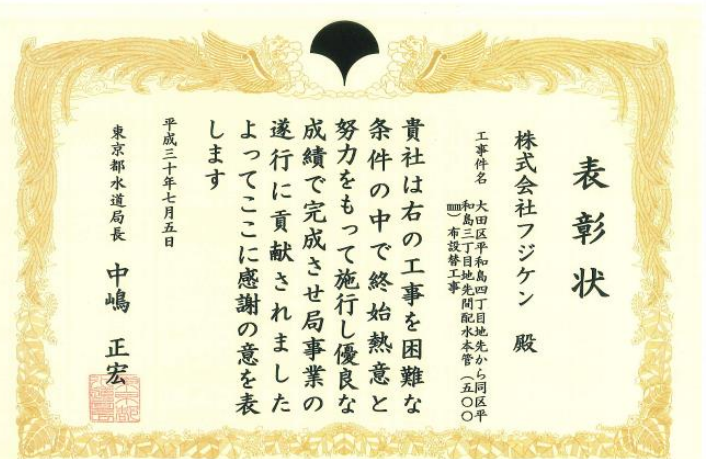 表彰状
株式会社フジケン 殿
工事件名 大田区平和島四丁目地先から同区平
和島三丁目地先間配水本管(五〇〇
㎜)布設替工事
貴社は右の工事を困難な
条件の中で終始熱意と
努力をもって施行し優良な
成績で完成させ局事業の
遂行に貢献されました
よってここに感謝の意を表
します
平成三十年七月五日
東京都水道局長 中嶋 正宏